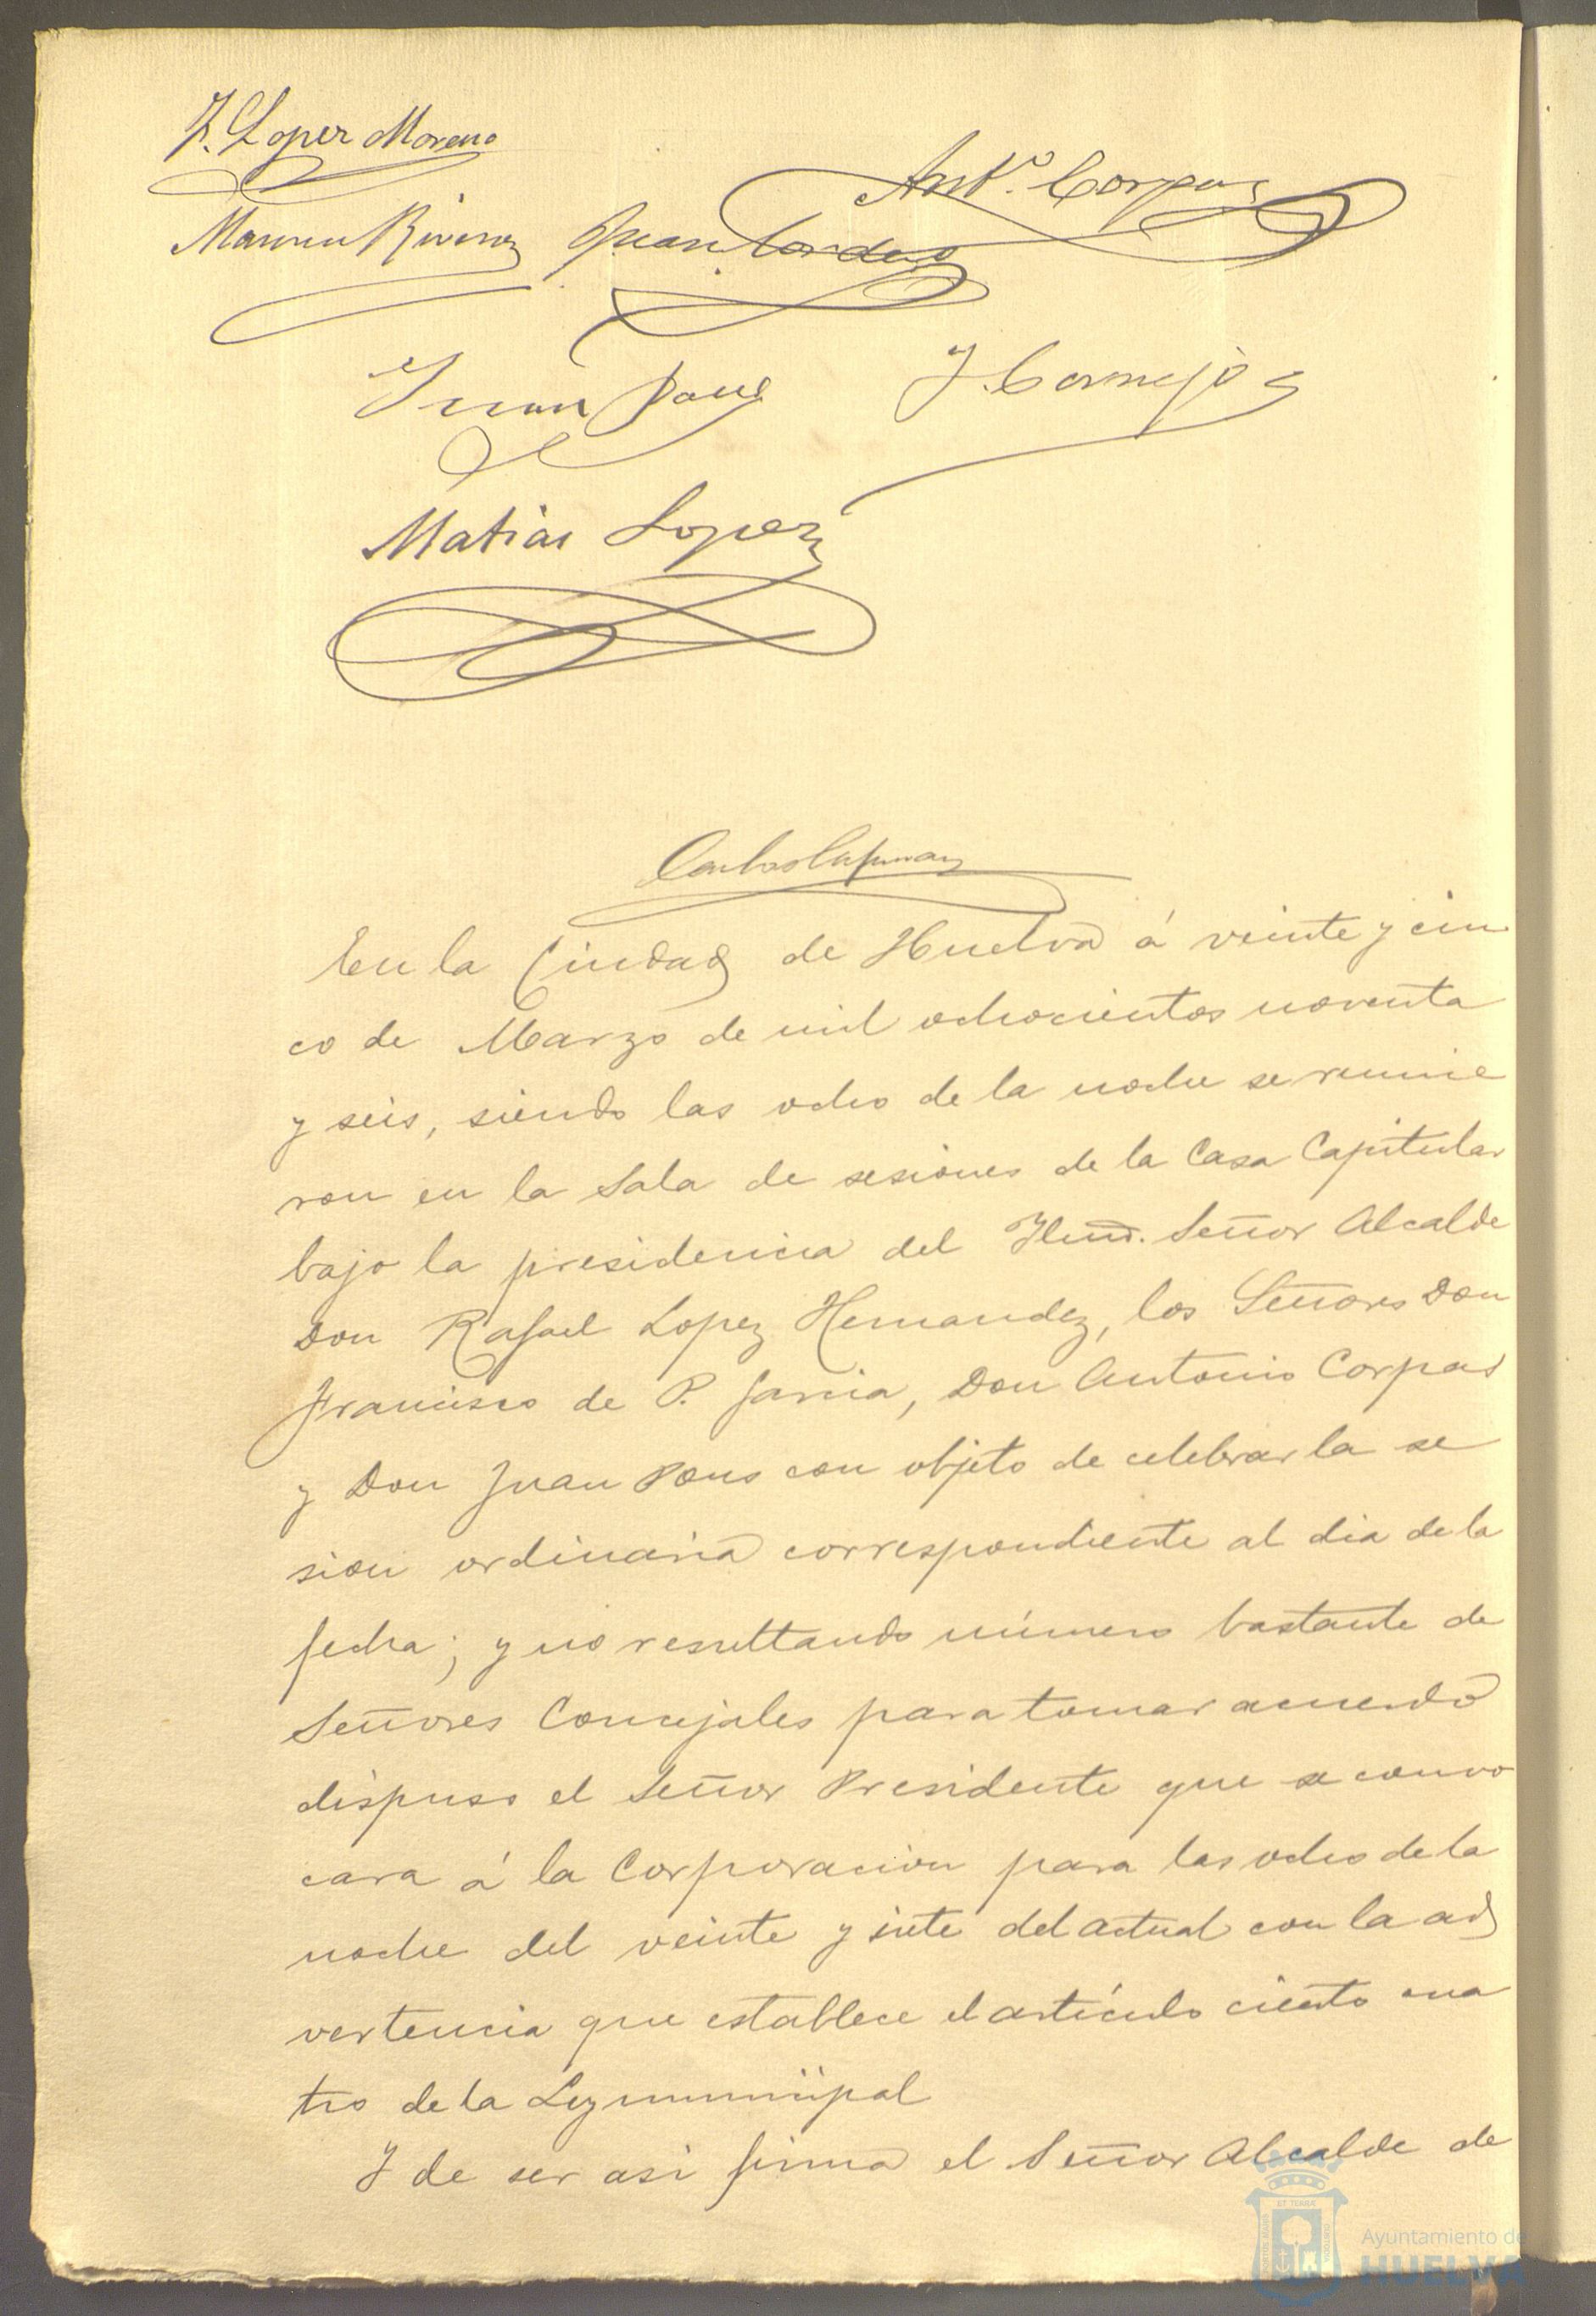 F. Lopez Moreno
Ant.º Corpas
Manuel Rivera Juan Cordero
Juan Pons J. Cornejo
Matias Lopez
Carlos
En la Ciudad de Huelva á veinte y cin
co de Marzo de mil ochocientos noventa
y seis, siendo las ocho de la noche se reunie
ron en la Sala de sesiones de la Casa Capitular
bajo la presidencia del Ylmo. Señor Alcalde
Don Rafael Lopez Hernandez, los Señores Don
Francisco de P. Garcia, Don Antonio Corpas
y Don Juan Pons con objeto de celebrar la se
sion ordinaria correspondiente al dia de la
fecha; y no resultando número bastante de
Señores Concejales para tomar acuerdo
dispuso el Señor Presidente que se convo
cara á la Corporacion para las ocho de la
noche del veinte y siete del actual con la ad
vertencia que establece el artículo ciento cua
tro de la Ley municipal
Y de ser asi firma el Señor Alcalde de
Ayuntamiento de
HUELVA